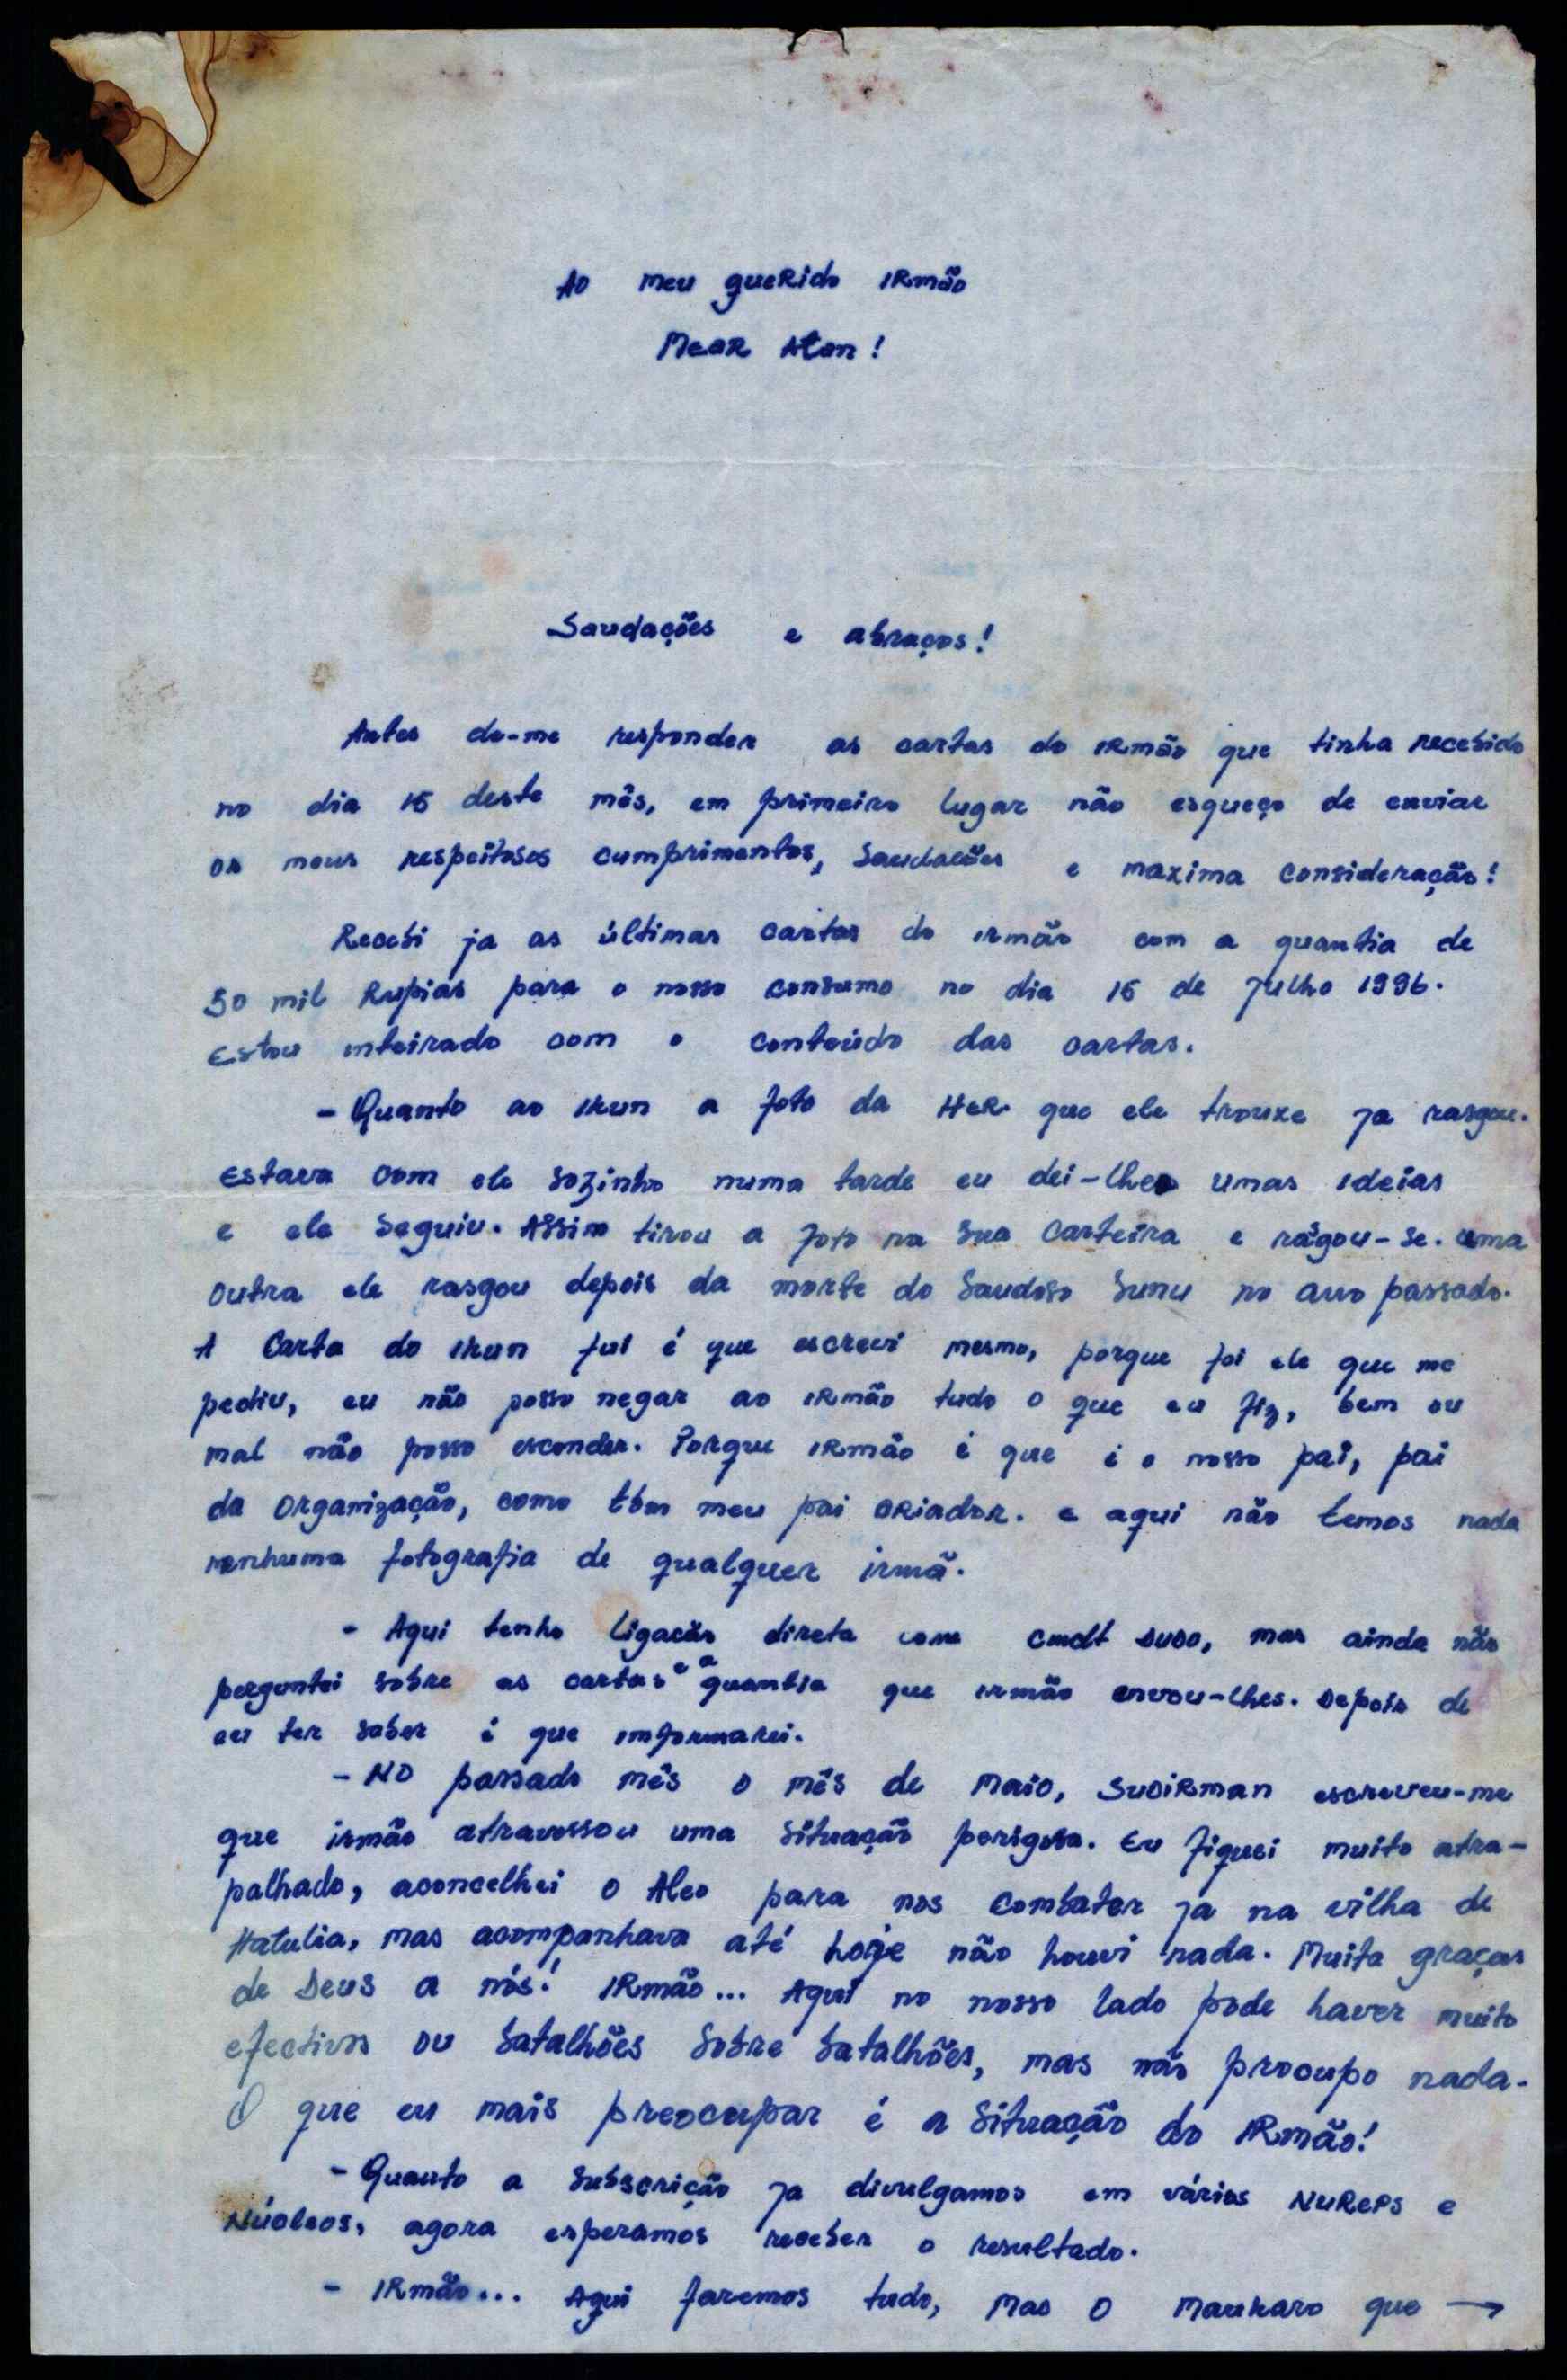 Ao meu queRido IRmão
MeaR Atan!
Saudações e abraços!
Antes de-me responder as cartas do IRmão que tinha recebido
no dia 15 deste mês, em primeiro lugar não esqueço de enviar
os meus respeitosos cumprimentos, Saudacões e maxima consideração!
Recebi ja as últimas cartas do irmão com a quantia de
50 mil Rupias para o nosso consumo no dia 15 de Julho 1996.
Estou inteirado com o conteúdo das cartas.
- Quanto ao Ikun a foto da HER que ele trouxe ja rasgou.
Estava com ele sozinho numa tarde eu dei-lhe umas ideias
e ele seguiu. ASSim tirou a foto na sua carteira e rásgou-se. uma
outra ele rasgou depois da morte do Saudoso Sunu no ano passado.
A Carta do Ikun fui é que escrevi mesmo, porque foi ele que me
pediu, eu não posso negar ao IRmão tudo o que eu fiz, bem ou
mal não posso esconder. Porque IRmão é que é o nosso pai, pai
da organização, como tbm meu pai cRiador. e aqui não temos nada
nenhuma fotografia de qualquer irmã.
- Aqui tenho Ligacão direta com cmdt DUDO, mas ainda não
perguntei sobre as cartas e a quantia que irmão envou-lhes. Depois de
eu ter saber é que informarei.
- NO passado mês o mês de Maio, SUDIRman escreveu-me
que irmão atravessou uma situação perigosa. Eu fiquei muito atra-
palhado, aconcelhei o Aleo para nos combater ja na vilha de
Hatulia, mas acompanhava até hoje não houvi nada. Muita graças
de Deus a nós! IRmão... Aqui no nosso lado pode haver muito
efectivos ou batalhões sobre batalhões, mas não procupo nada.
O que eu mais preocupar é a Situação do IRmão!
- Quanto a subscrição ja divulgamos em vários NUREPS e
Núcleos, agora esperamos receber o resultado.
- IRmão... Aqui faremos tudo, mas o Maukaro que →